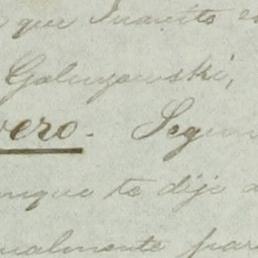 que Juanito e
Galuzowski,
vero. Segun
nque te dije a
ualmente par